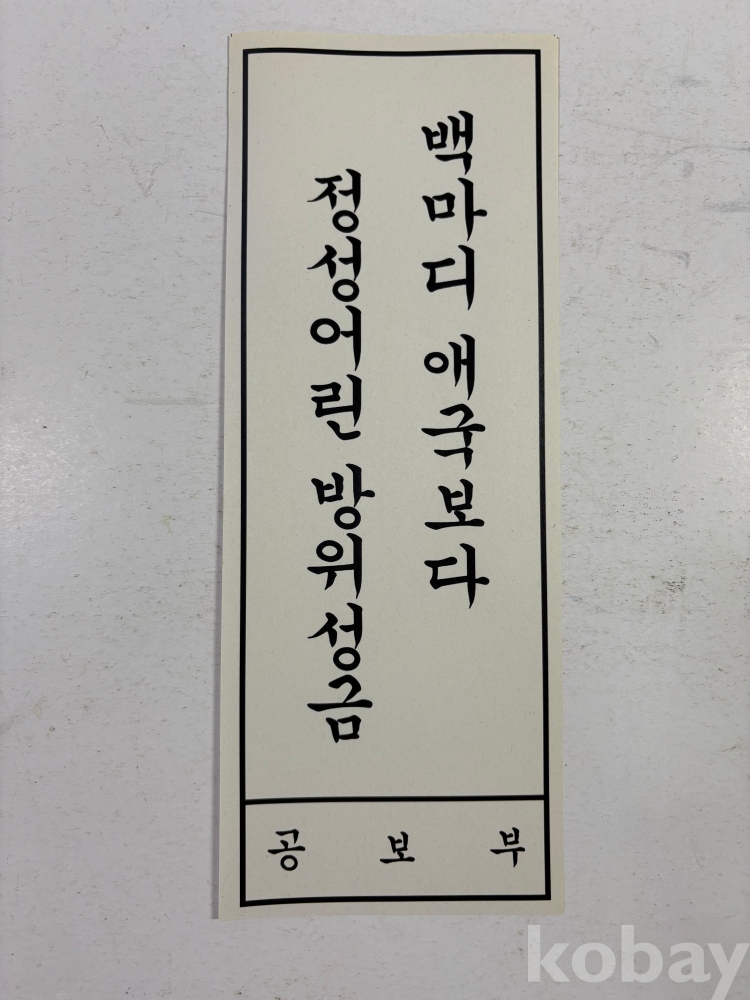 백마디 애국보다
정성어린 방위성금
공보부
kobay